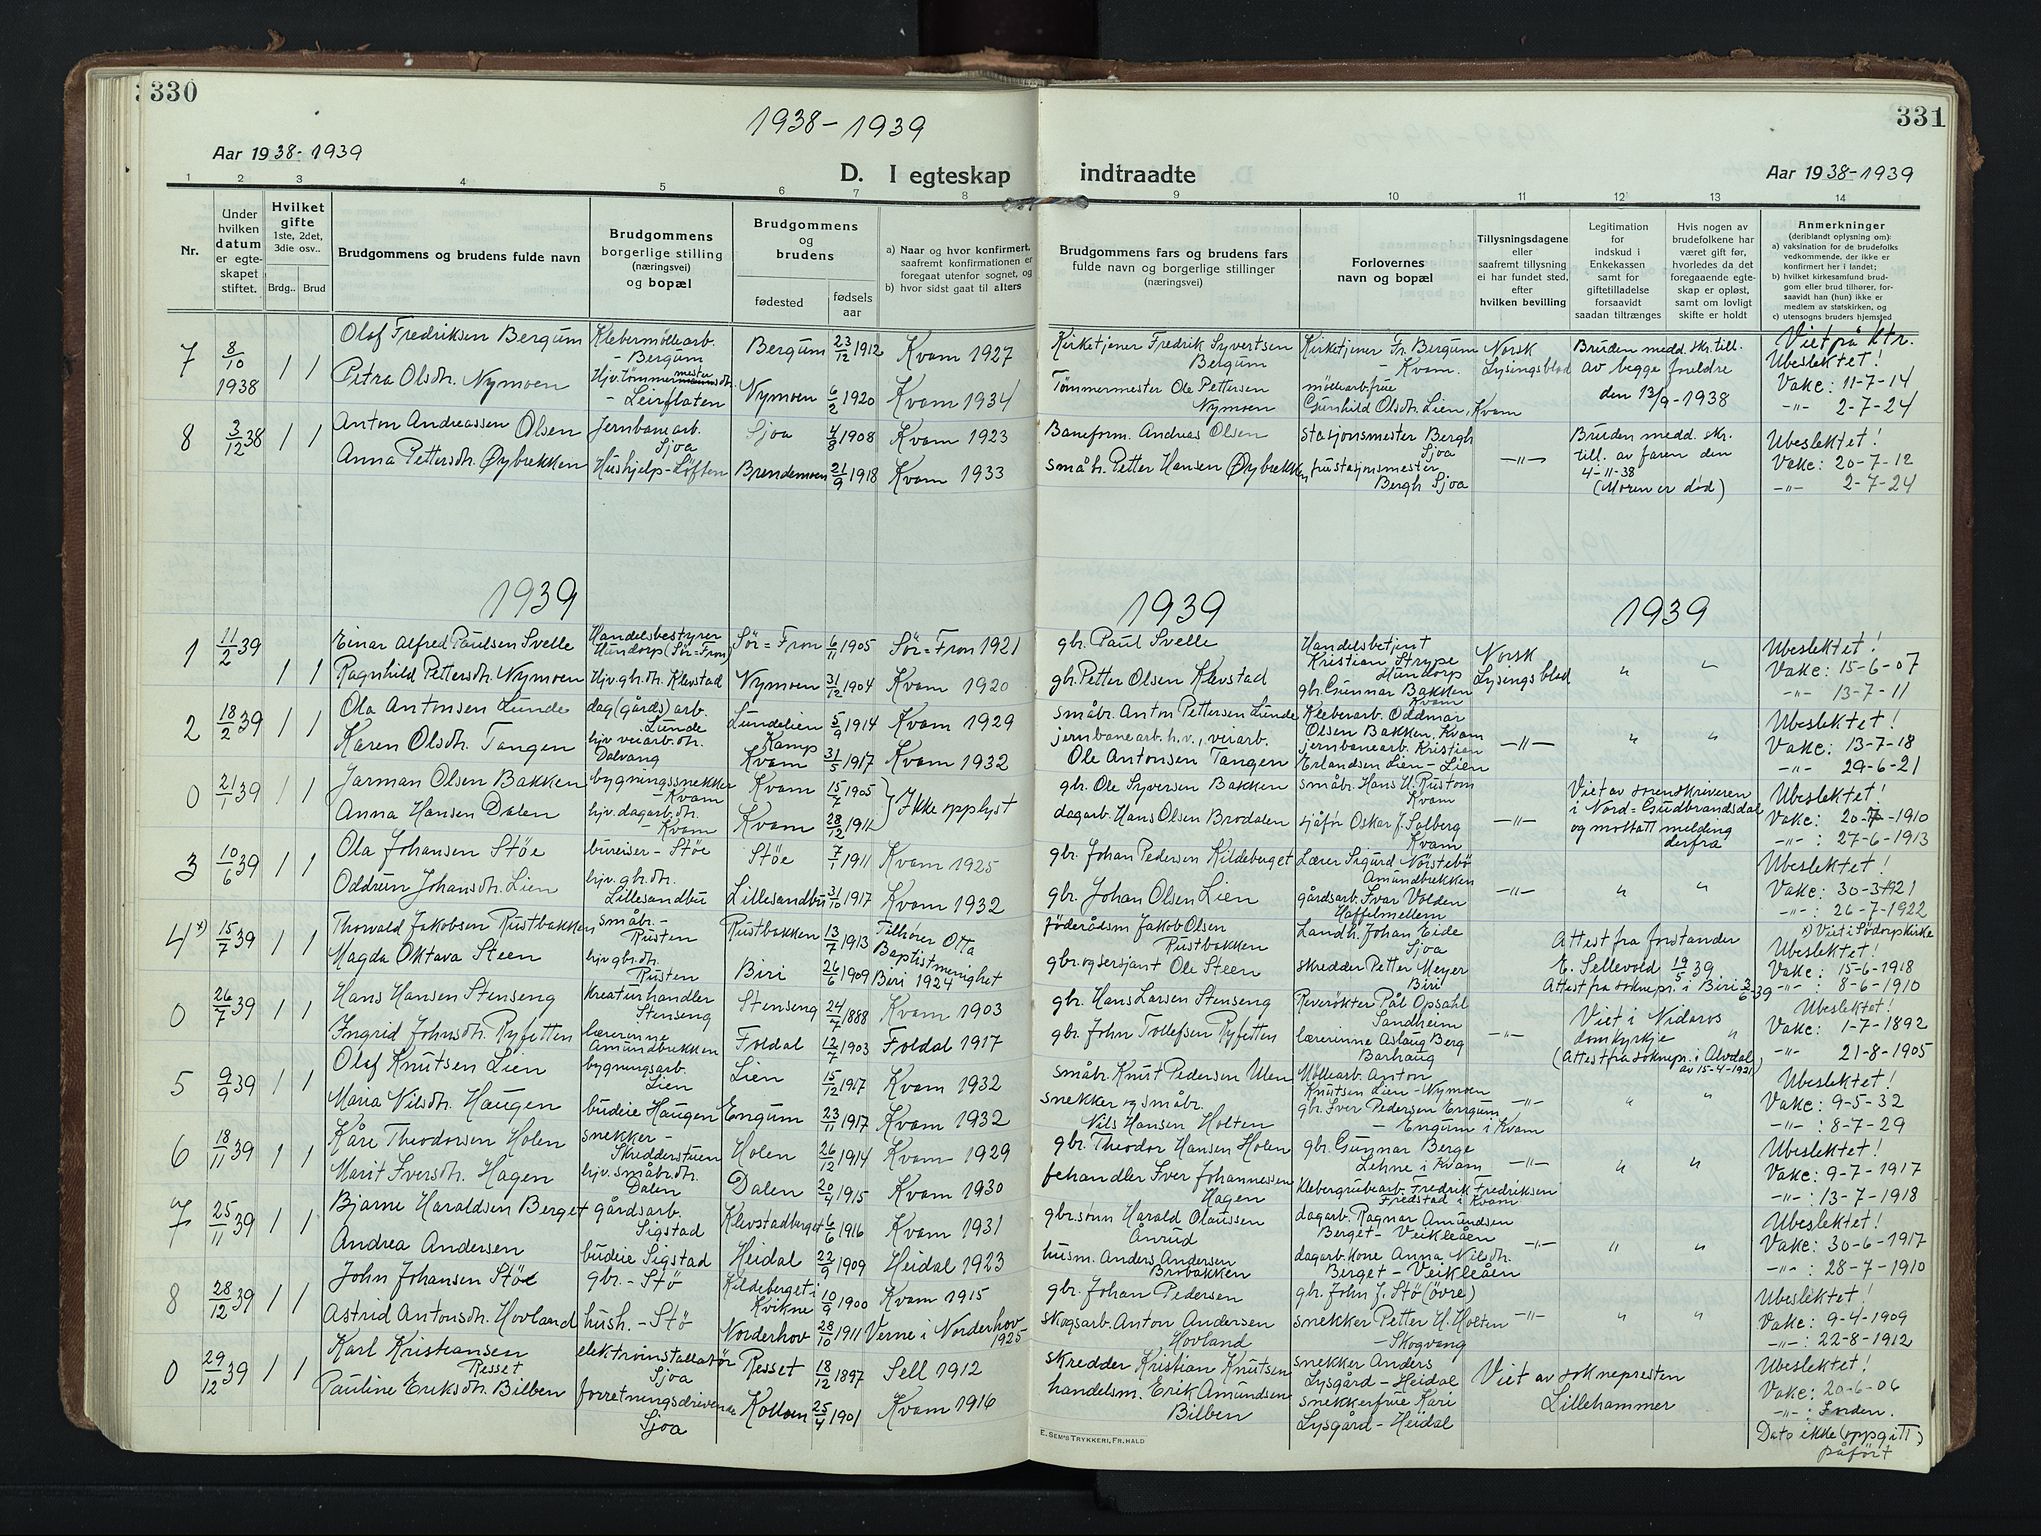 330
331
1938-1939
Aar 1938-1939
D. I egteskap indtraadte
Aar 1938-1939
1 2 3 4 5 6 7 8 9 10 11 12 13 14
Nr.
Under hvilken datum er egteskapet stiftet.
Hvilket gifte 1ste, 2det, 3die osv..
Brdg.. Brud
Brudgommens og brudens fulde navn
Brudgommens borgerlige stilling (næringsvei) og bopæl
Brudgommens og brudens
fødested
fødselsaar
a) Naar og hvor konfirmert, saafremt konfirmationen er foregaat utenfor sognet, og
b) hvor sidst gaat til alters
Brudgommens fars og brudens fars fulde navn og borgerlige stillinger (næringsvei)
Forlovernes navn og bopæl
Tillysningsdagene eller saafremt tillysning ei har fundet sted, efter hvilken bevilling
Legitimation for indskud i Enkekassen samt for giftetilladelse forsaavidt saadan tiltrænges
Hvis nogen av brudefolkene har været gift før, hvorledes da det foregaaende egteskap er opløst, samt om lovligt skifte er holdt
Anmerkninger (deriblandt oplysning om):
a) vaksination for de brudefolks vedkommende, der ikke er konfirmert her i landet;
b) hvilket kirkesamfund brudgom eller brud tilhører, forsaavidt han (hun) ikke er medlem av statskirken, og
c) utensogns bruders hjemsted
7 8/10 1938 1 1 Olaf Fredriksen Bergum Klebermöllearb. - Bergum Bergum 23/12 1912 Kvam 1927 Kirketjener Fredrik Syvertsen Bergum Kirketjener Fr. Bergum - Kvam. Norsk Lysingsblad Bruden medd. skr. till. av begge foreldre den 12/9-1938 Viet på ktr. Ubeslektet! Vake: 11-7-14
Petra Olsdtr. Nymoen Hjv. tømmermester dtr. - Leirflaten Nymoen 6/2 1920 Kvam 1934 Tømmermester Ole Pettersen Nymoen möllearb. frue Gunhild Olsdtr. Lien, Kvam -"- 2-7-24
8 3/12 38 1 1 Anton Andreassen Olsen Jernbanearb. Sjoa Sjoa 4/8 1908 Kvam 1923 Baneform. Andreas Olsen Stasjonsmester Bergh Sjoa -"- Bruden medd. skr. till. av faren den 4-11-38 (Moren er død) Ubeslektet! Vake: 20-7-12
Anna Pettersdtr. Øybrekken Hushjelp - Loften Brendemoen 21/9 1918 Kvam 1933 småbr. Petter Hansen Øybrekken frustasjonsmester Bergh Sjoa -"- 2-7-24
1939
1939
1939
1 11/2 39 1 1 Einar Alfred Paulsen Svelle Handelsbestyrer Hundorp (Sør=Fron) Sör=Fron 6/11 1905 Sör=Fron 1921 gbr. Paul Svelle Handelsbetjent Kristian Strype Hundorp Norsk Lysingsblad " " Ubeslektet! Vake: 15-6-07
Ragnhild Pettersdtr. Nymoen Hjv. gbr. dtr. Klevstad Nymoen 31/12 1904 Kvam 1920 gbr. Petter Olsen Klevstad gbr. Gunnar Bakken Kvam -"- 13-7-11
2 18/2 39 1 1 Ola Antonsen Lunde dag(gårds)arb. Lunde Lundelien 5/9 1914 Kvam 1929 småbr. Anton Pettersen Lunde Kleberarb. Oddmar Olsen Bakken, Kvam -"- " " Ubeslektet! Vake: 13-7-18
Karen Olsdtr. Tangen hjv. veiarb. dtr. Dalvang Kamp Kvam 31/5 1917 Kvam 1932 jernbanearb. h.v., veiarb. Ole Antonsen Tangen jernbanearb. Kristian Erlandsen Lien - Lien -"- 29-6-21
0 21/1 39 1 1 Jarman Olsen Bakken bygningssnekker - Kvam Kvam 15/7 1905 } Ikke opplyst gbr. Ole Syversen Bakken småbr. Hans U. Rustom Kvam -"- Viet av sorenskriveren i Nord=Gudbrandsdal og mottatt melding derfra Ubeslektet! Vake: 20-7-1910
Anna Hansen Dalen hjv. dagarb. dtr. - Kvam Kvam 28/12 1912 dagarb. Hans Olsen Brodalen sjåfør Oskar J. Solberg Kvam -"-: 27-6-1913
3 10/6 39 1 1 Ola Johansen Støe bureiser - Støe Støe 7/1 1911 Kvam 1925 gbr. Johan Pedersen Kildeberget Lærer Sigurd Nørstebø Amundbrekken -"- " " Ubeslektet! Vake: 30-3-1921
Oddrun Johansdtr. Lien hjv. gbr. dtr. Lillesandbu Lillesandbu 31/10 1917 Kvam 1932 gbr. Johan Olsen Lien gårdsarb. Ivar Volden Hoffelmellem -"-: 26-7-1922
4 x) 15/7 39 1 1 Thorvald Jakobsen Rustbakken småbr. - Rusten Rustbakken 13/7 1913 Tilhører Otta Baptistmenighet Jakob Olsen Rustbakken Landh. Johan Eide Sjoa Attest fra forstander E. Sellevold 19/5 39 x) Viet i Sødorp kirke Ubeslektet! Vake: 15-6-1918
Magda Oktava Steen hjv. gbr. dtr. Rusten Biri 26/6 1909 Biri 1924 gbr. og sersjant Ole Steen skredder Petter Meyer Biri Attest fra soknepr. i Biri 3/6-39 -"-: 8-6-1910
0 26/7 39 1 1 Hans Hansen Stenseng Kreaturhandler Stenseng Stenseng 24/7 1888 Kvam 1903 gbr. Hans Larsen Stenseng Reverøkter Pål Opsahl Sandheim -"- Viet i Nidaros domkyrkje " Ubeslektet! Vake: 1-7-1892
Ingrid Johnsdtr. Ryfetten lærerinne Amundbrekken Foldal 12/7 1903 Foldal 1917 gbr. John Tollefsen Ryfetten lærerinne Aslaug Berg Barhaug (Attest fra soknepr. i Alvdal av 15-4-1921) -"- 21-8-1905
5 9/9 39 1 1 Olaf Knutsen Lien bygningsarb. Lien Lien 15/12 1917 Kvam 1932 småbr. Knut Pedersen Ulen Möllearb. Anton Knutsen Lien - Nymoen -"- " " Ubeslektet! Vake: 9-5-32
Maria Nilsdtr. Haugen budeie Haugen Engum 23/11 1917 Kvam 1932 snekker og småbr. Nils Hansen Holten gbr. Iver Pedersen Engum - Engum i Kvam -"-: 8-7-29
6 18/11 39 1 1 Kåre Theodorsen Holen snekker - Skredderstuen Holen 26/12 1914 Kvam 1929 gbr. Theodor Hansen Holen gbr. Gunnar Berge Lehne i Kvam -"- " " Ubeslektet! Vake: 9-7-1917
Marit Iversdtr. Hagen hjv. småbr. dtr. Dalen Dalen 20/4 1915 Kvam 1930 fehandler Iver Johannessen Hagen Klebergrubearb. Fredrik Fredriksen Fredstad i Kvam -"-: 13-7-1918
7 25/11 39 1 1 Bjarne Haraldsen Berget gårdsarb. Sigstad Klevstadberget 6/6 1916 Kvam 1931 gbr. sønn Harald Olaussen Ånrud dagarb. Ragnar Amundsen Berget - Veikleåen -"- " " Ubeslektet! Vake: 30-6-1917
Andrea Andersen budeie Sigstad Heidal 22/9 1909 Heidal 1923 husm. Anders Andersen Brobakken dagarb. kone Anna Nilsdtr. Berget - Veikleåen -"-: 28-7-1910
8 28/12 39 1 1 John Johansen Støe gbr. - Stø Kildeberget i Kvikne 10/9 1900 Kvam 1915 gbr. Johan Pedersen gbr. John J. Stø (øvre) -"- " " Ubeslektet! Vake: 9-4-1909
Astrid Antonsdtr. Hovland hush. - Stø Norderhov 28/10 1911 Verne i Norderhov 1925 skogsarb. Anton Andersen Hovland snekker Petter H. Holten - Skogvang -"-: 22-8-1912
0 29/12 39 1 1 Karl Kristiansen Resset elektroinstallatør Sjoa Resset 18/12 1897 Sell 1912 skredder Kristian Knutsen snekker Anders Lysgård - Heidal Viet av soknepresten Lillehammer Ubeslektet! Vake: 20-6-06
Pauline Eriksdtr. Bilben forretningsdrivende Sjoa Kolloen 25/4 1901 Kvam 1916 handelsm. Erik Amundsen Bilben snekkerfrue Kari Lysgård - Heidal -"-: Inden. Dato ikke (oppgitt) påført
E. SEM'S TRYKKERI, FR.HALD